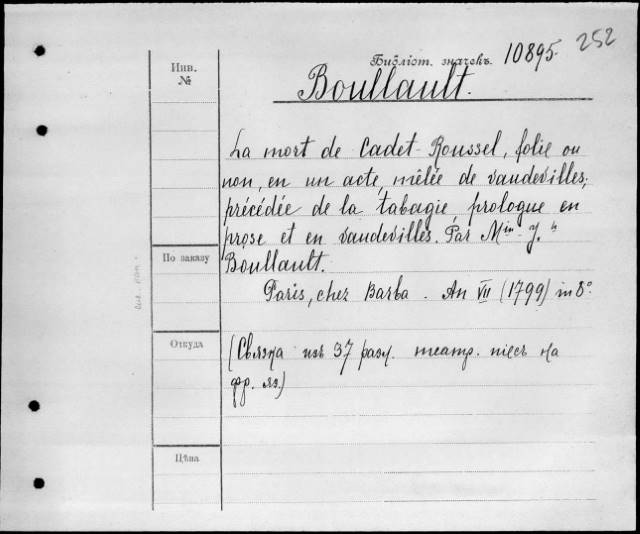 252
Библіот. значекъ. 10895.
Инв.
№
Boullault.
La mort de Cadet-Roussel, folie ou
non, en un acte, mêlée de vaudevilles,
précédée de la tabagie, prologue en
prose et en vaudevilles. Par Min J.h
По заказу
Boullault.
Paris, chez Barba. An VII (1799) in 8°
Откуда
(Связка изъ 37 разл. театр. пиес на
фр. яз.)
Цѣна